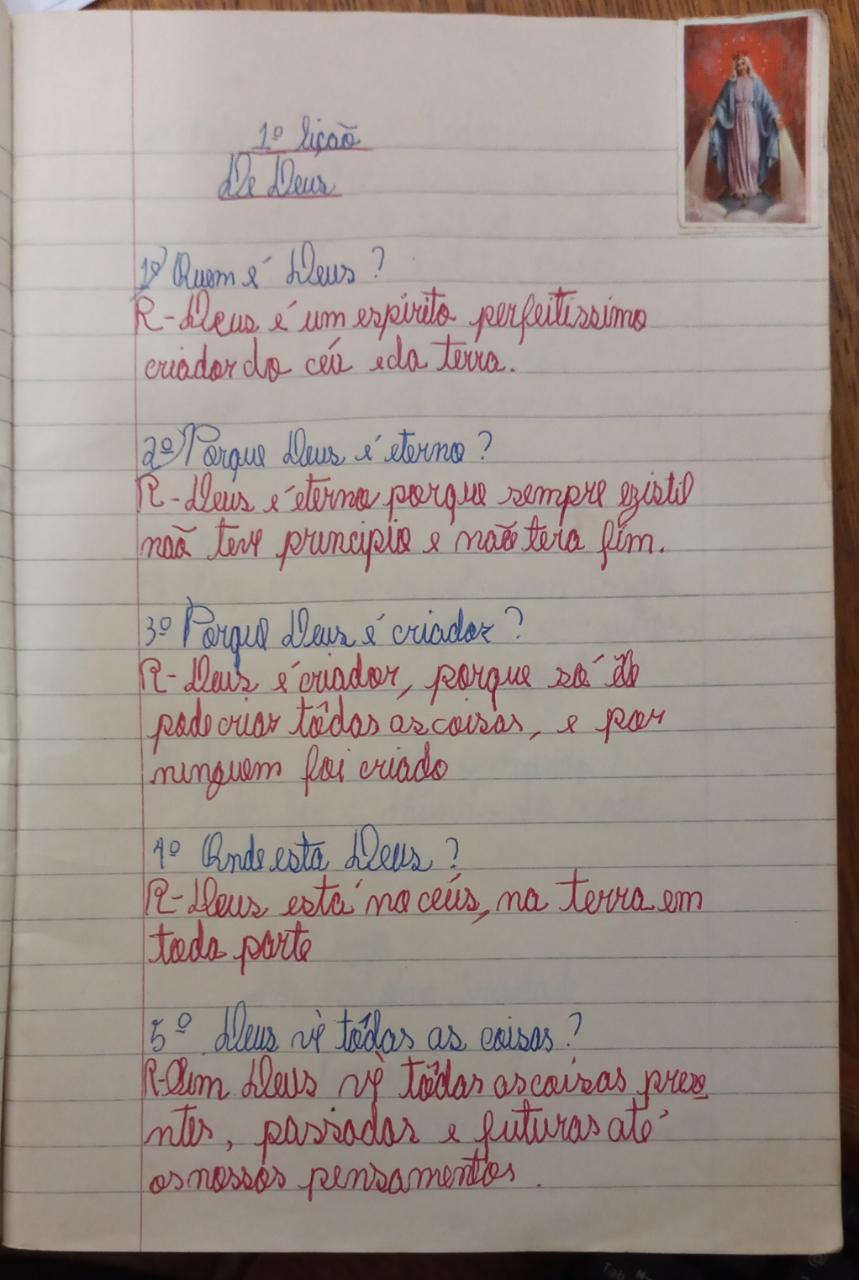 1º lição
De Deus
1º) Quem é Deus?
R- Deus é um espirito perfeitissimo
criador do céu e da terra.
2º) Porque Deus é eterno?
R- Deus é eterno porque sempre ezistil
não teve principio e não tera fim.
3º Porque Deus é criador?
R- Deus é criador, porque só êle
pode criar tôdas as coisas, e por
ninguem foi criado
4º Onde esta Deus?
R- Deus está no ceús, na terra em
toda parte
5º Deus vê tôdas as coisas?
R- Sim Deus vê tôdas as coisas prese
ntes, passadas e futuras até
os nossos pensamentos.